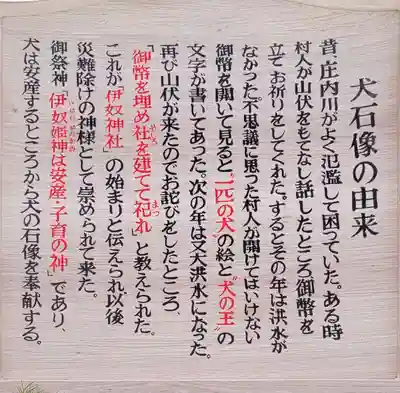 犬石像の由来
昔、庄内川がよく氾濫して困っていた。ある時
村人が山伏をもてなし話したところ、御幣を
立てお祈りをしてくれた。するとその年は洪水が
なかった。不思議に思った村人が開けてはいけない
御幣を開いて見ると、“一匹の犬”の絵と“犬の王”の
文字が書いてあった。次の年は又大洪水になった。
再び山伏が来たのでお詫びをしたところ、
「御幣を埋め社を建てて祀れ」と教えられた。
これが「伊奴神社」の始まりと伝えられ、以後
災難除けの神様として崇められて来た。
御祭神「伊奴姫神は安産・子育の神」であり、
犬は安産するところから犬の石像を奉献する。